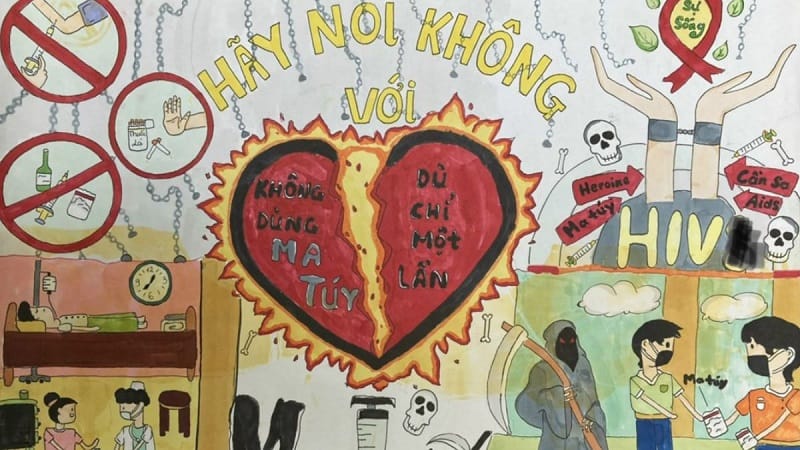 HÃY NÓI KHÔNG
VỚI
Sự
Sống
Thuốc
lá
KHÔNG
DÙNG
MA
TÚY
DÙ
CHỈ
MỘT
LẦN
Heroine
Ma túy
Cần Sa
Aids
HIV
Ma túy